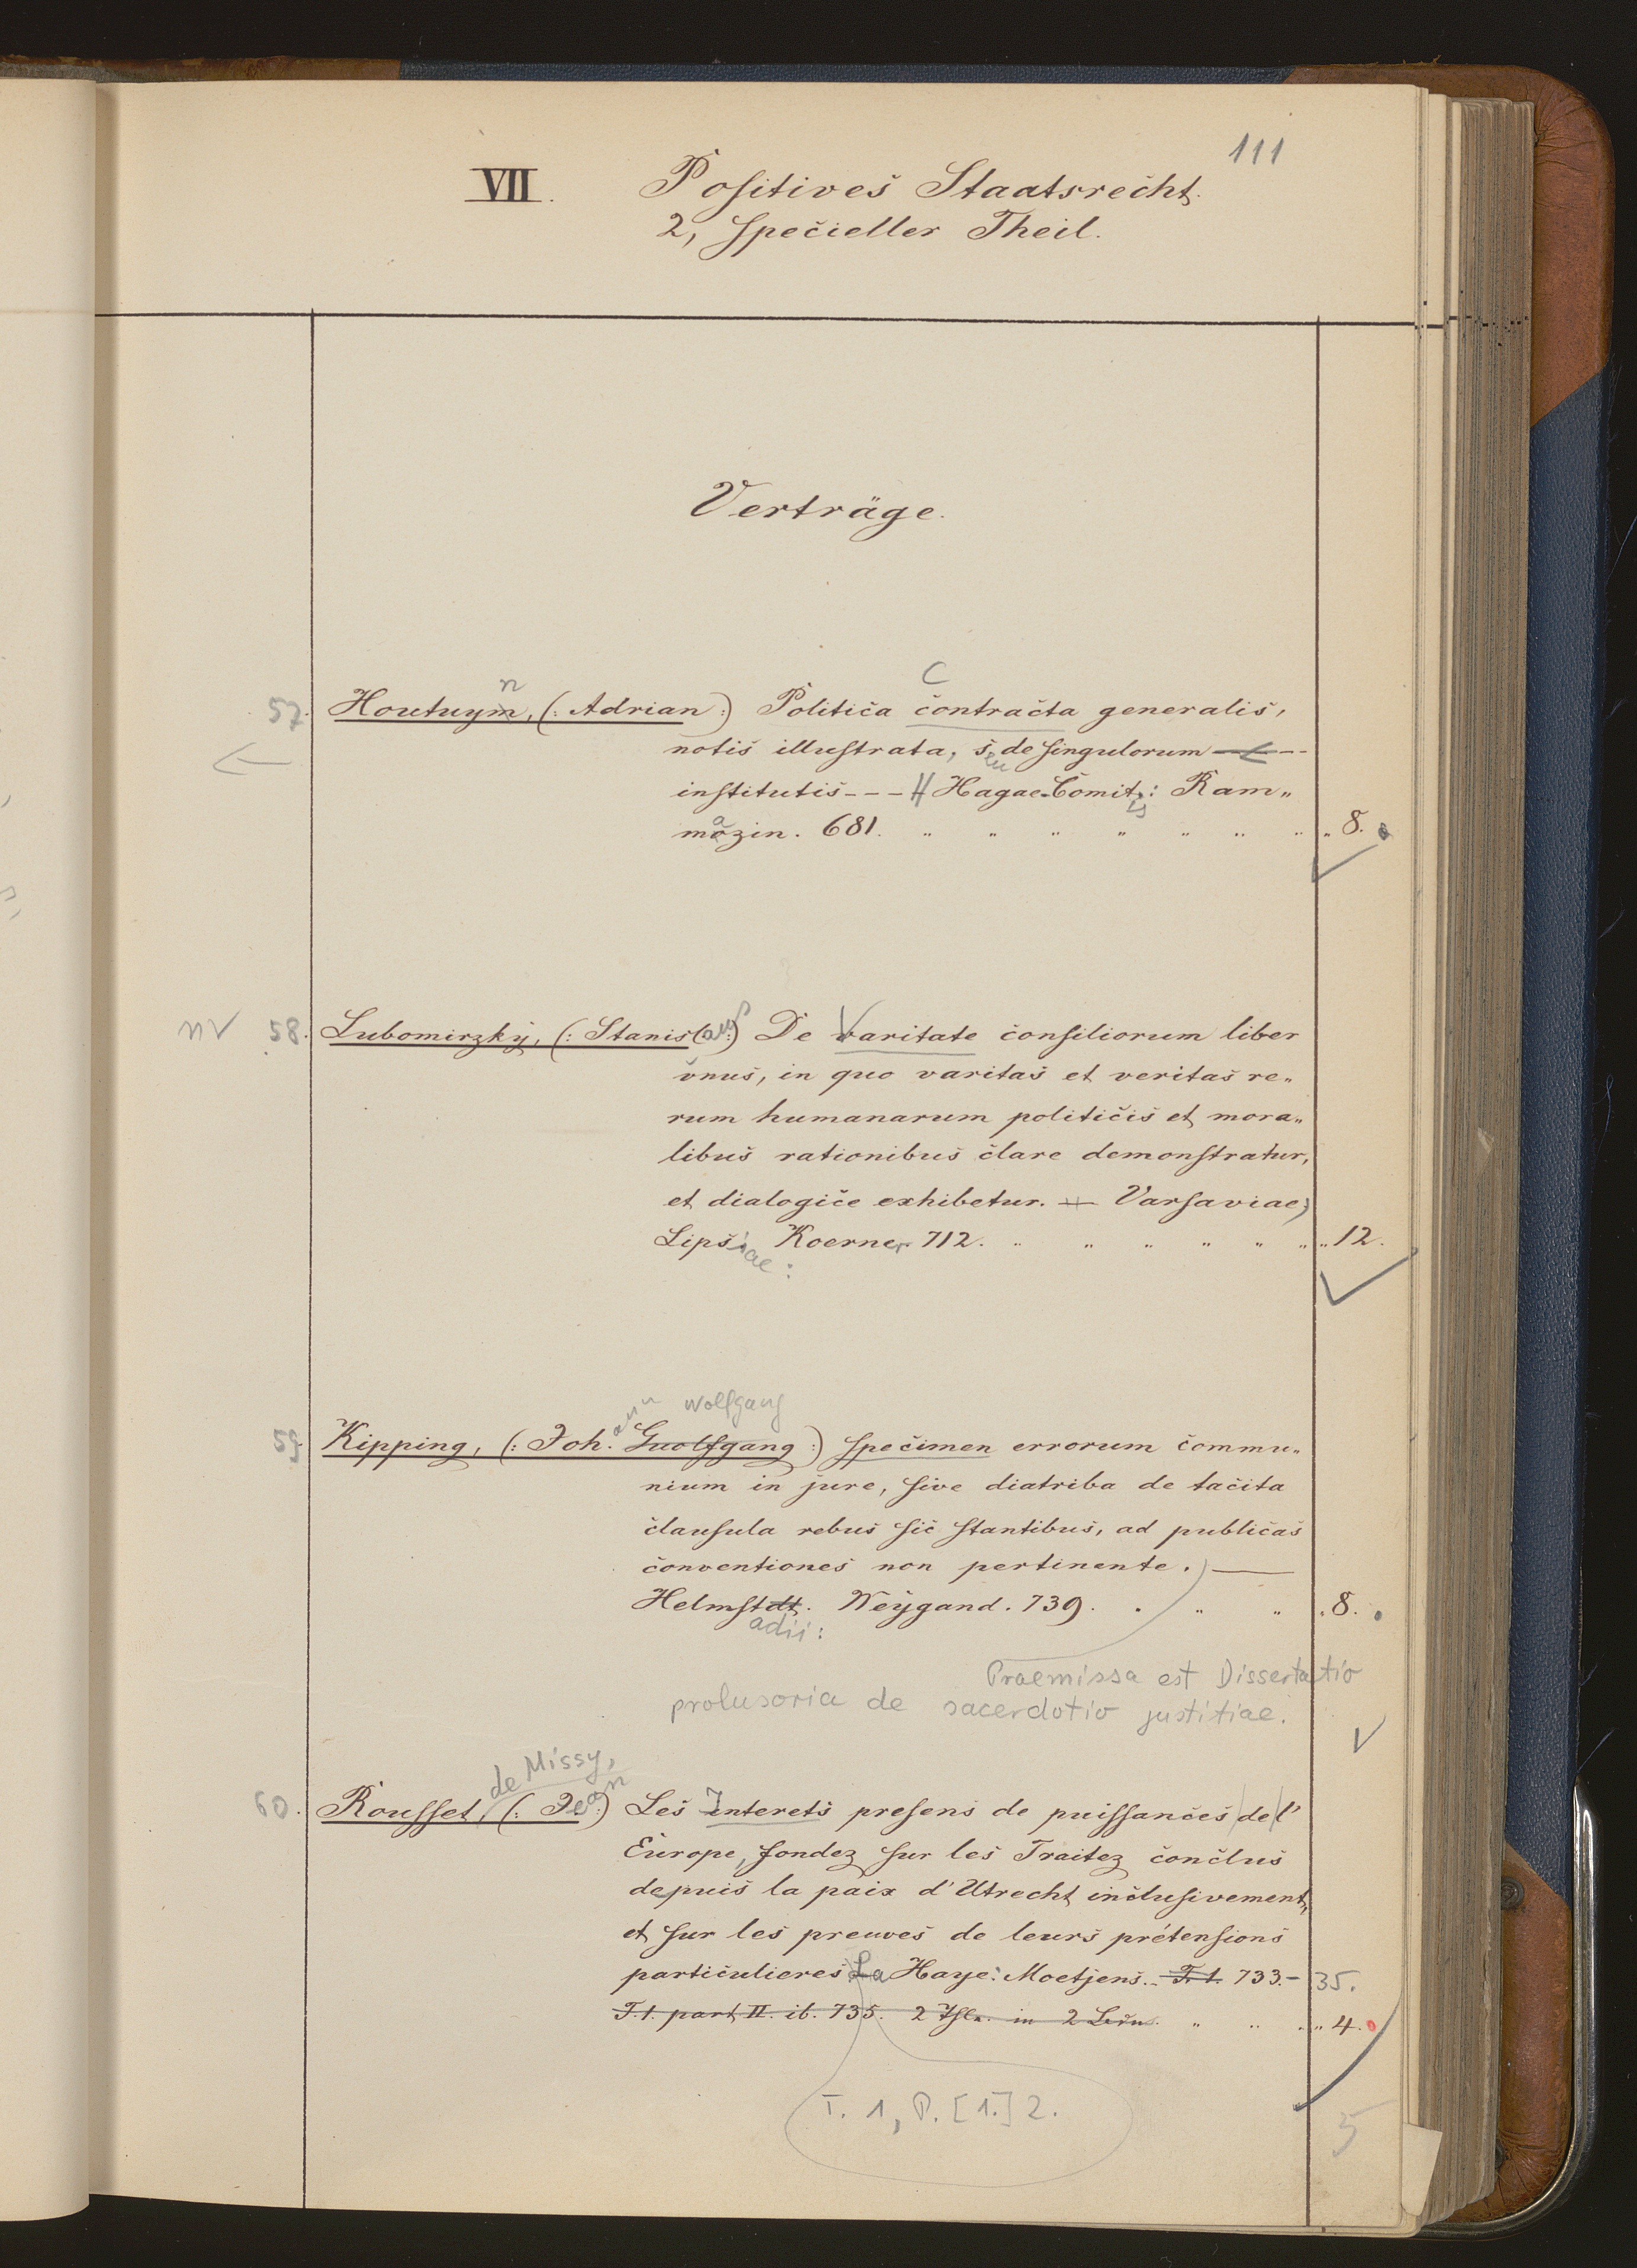 111
VII. Positives Staatsrecht.
2, specieller Theil.
Verträge.
n C
57. Houtuym, (: Adrian :) Politica contracta generalis,
notis illustrata, seu de singulorum ---
institutis --- Hagae-Comitis: Ram„
mazin. 681. „ „ „ „ „ „ „ „ 8.
nv 58. Lubomirzky, (: Stanislaus :) De Varitate consiliorum liber
unus, in quo varitas et veritas re„
rum humanarum politicis et mora„
libus rationibus clare demonstratur,
et dialogice exhibetur. — Varsaviae,
Lipsiae: Koerner 712. „ „ „ „ „ „ „ 12.
ann Wolfgang
59. Kipping, (: Joh. Guolfgang :) specimen errorum commu„
nium in jure, sive diatriba de tacita
clausula rebus sic stantibus, ad publicas
conventiones non pertinente. —
Helmstdt. Weygand. 739. „ „ „ 8.
adii:
Praemissa est Dissertatio
prolusoria de sacerdotio justitiae.
de Missy,
60. Rousset, (: Jean :) Les Interets presens de puissances de l'
Europe, fondez sur les Traitez conclus
depuis la paix d'Utrecht inclusivement,
et sur les preuves de leurs prétensions
particulieres La Haye: Moetjens. T. 1. 733.- 35.
T. 1. part II. ib. 735. 2 in 2 „ „ „ „ 4.
T. 1, P. [1.] 2.
5